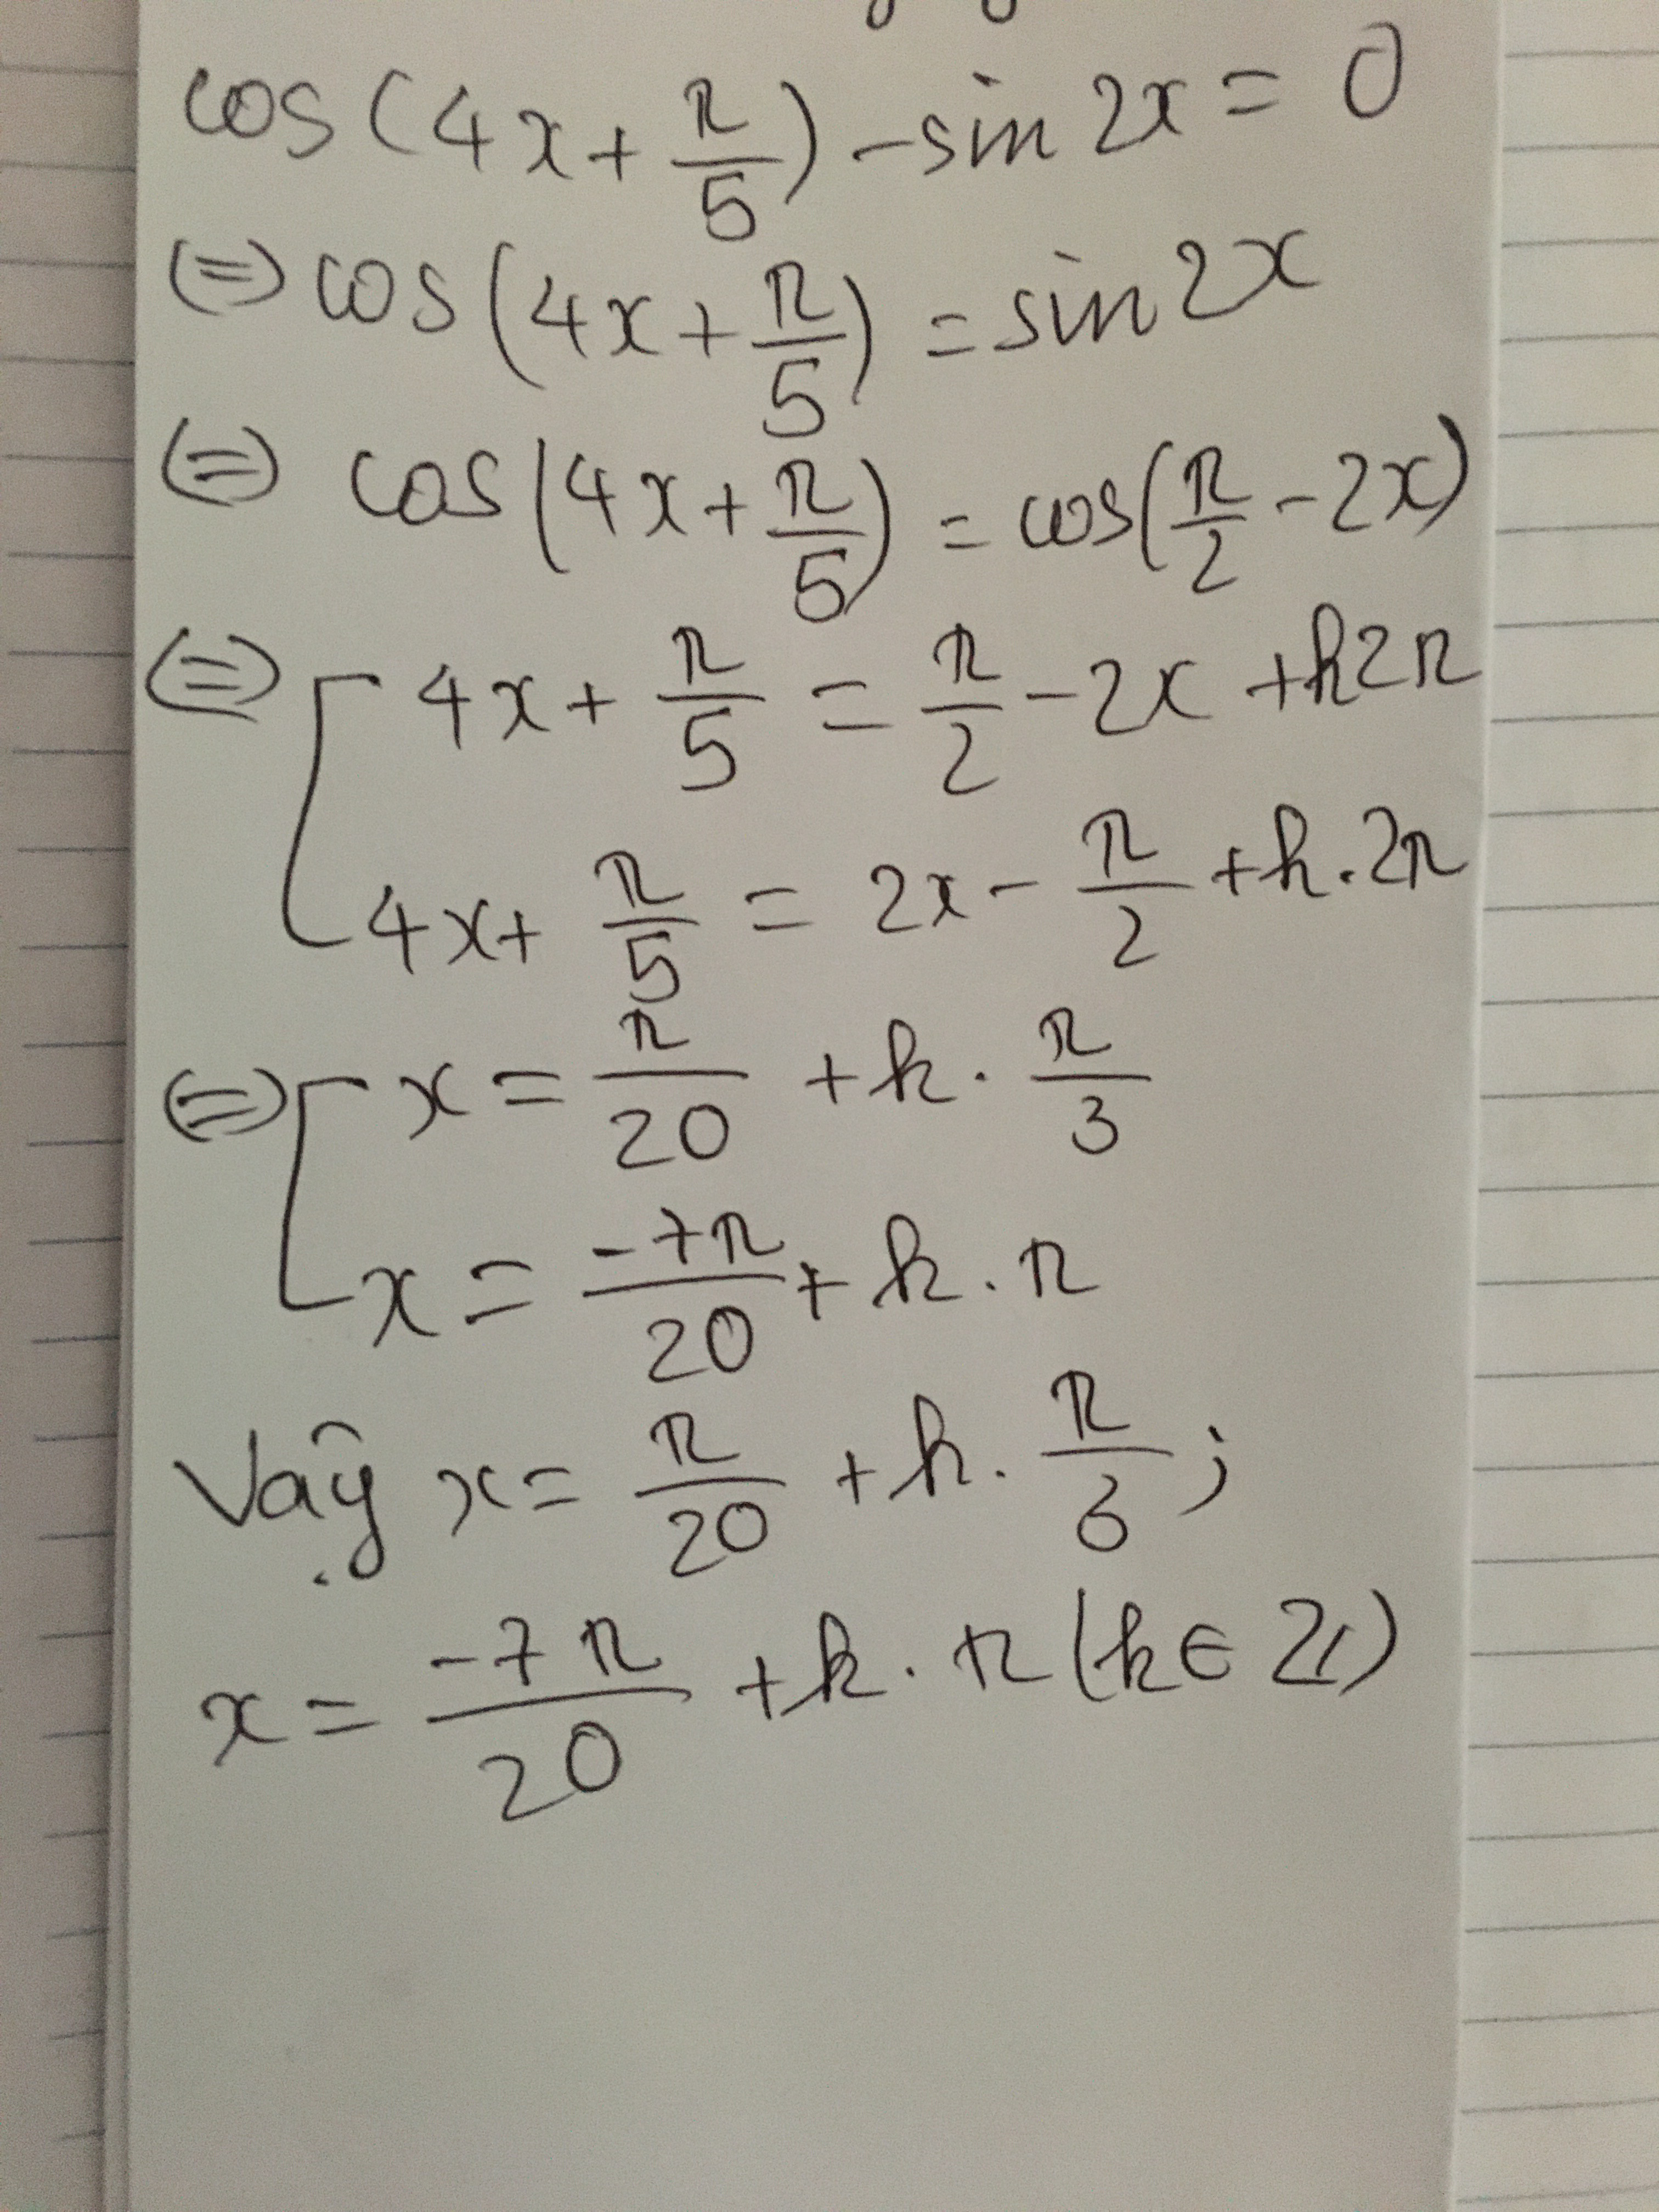 cos(4x + π/5) - sin 2x = 0
(=) cos(4x + π/5) = sin 2x
(=) cos(4x + π/5) = cos(π/2 - 2x)
(=) [ 4x + π/5 = π/2 - 2x + k2π
4x + π/5 = 2x - π/2 + k.2π
(=) [ x = π/20 + k. π/3
x = -7π/20 + k. π
Vậy x = π/20 + k. π/3 ;
x = -7π/20 + k. π (k ∈ Z)